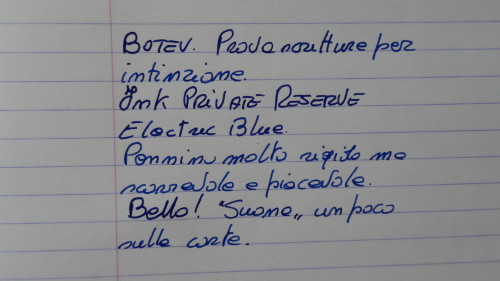 BOTEV. Prova scritture per
intinzione.
Ink PRIVATE RESERVE
Electric Blue.
Pennino molto rigido ma
scorrevole e piacevole.
Bello! "Suona„ un poco
sulla carta.